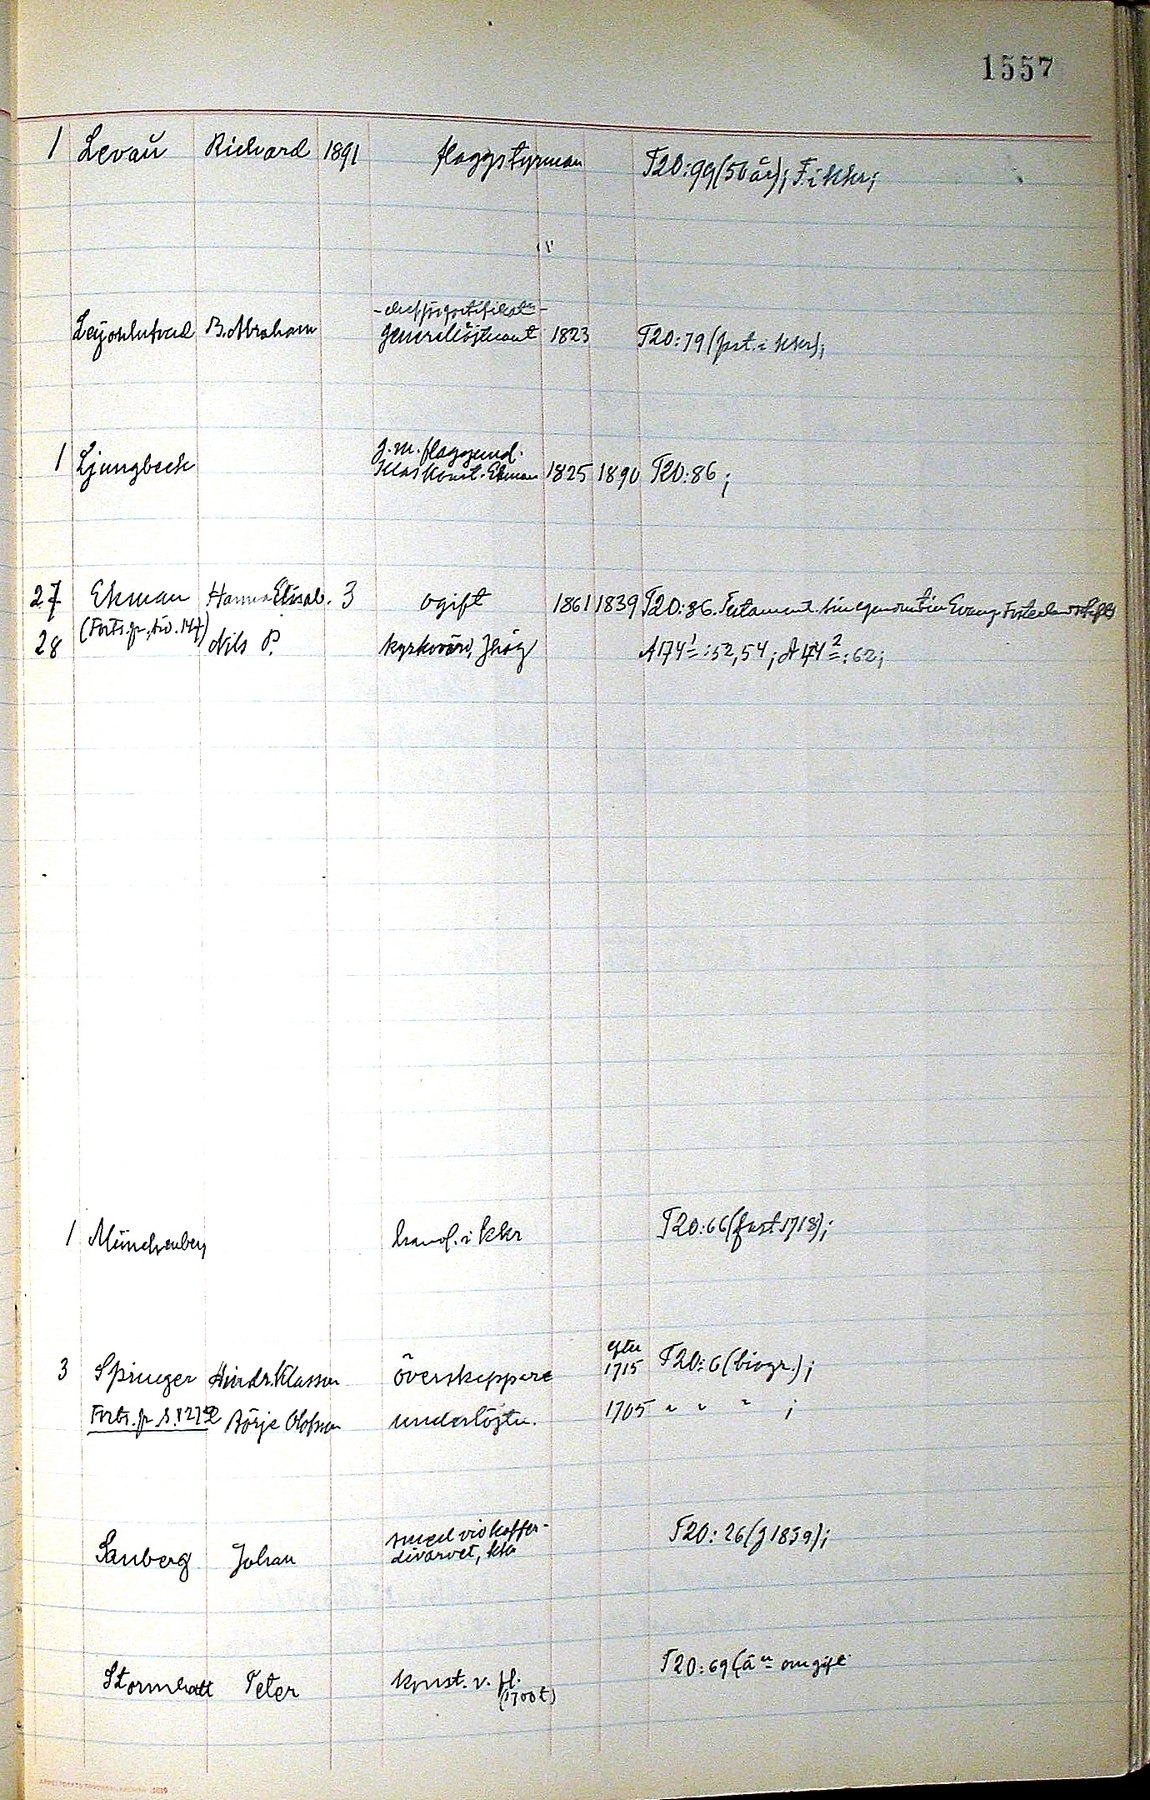 1557
1 Levaű Richard 1891 flaggstyrman T20:99 (50 år); F. i kkr;
Lejonhufvud B. Abraham generallöjtnant 1823 T20:79 (fast. i kkr);
1 Ljungbeck
g.m. flaggund.
Klas Konst. Ekman 1825 1890 T20:86;
27 Ekman Hanna Elisab. 3 ogift 1861 1839 T20:86. Testament. sin egendom
(Forts. fr. sid. 147)
28 Nils P. kyrkvärd, A174¹:52,54; A174²:62;
1 Münchenberg handl. i kkr T20:66 (fast. 1718);
3 Springer Hindr. Klasson överskeppare efter 1715 T20:6 (biogr.);
Forts. fr. s. Börje Olofsson underlöjtn. 1705 " " " ;
Sanberg Johan
smed vid koffer-
divarvet, kkr T20:26 (g 1839);
Stormhatt Peter konst. v. fl.
(1700t) T20:69 (ä omgift